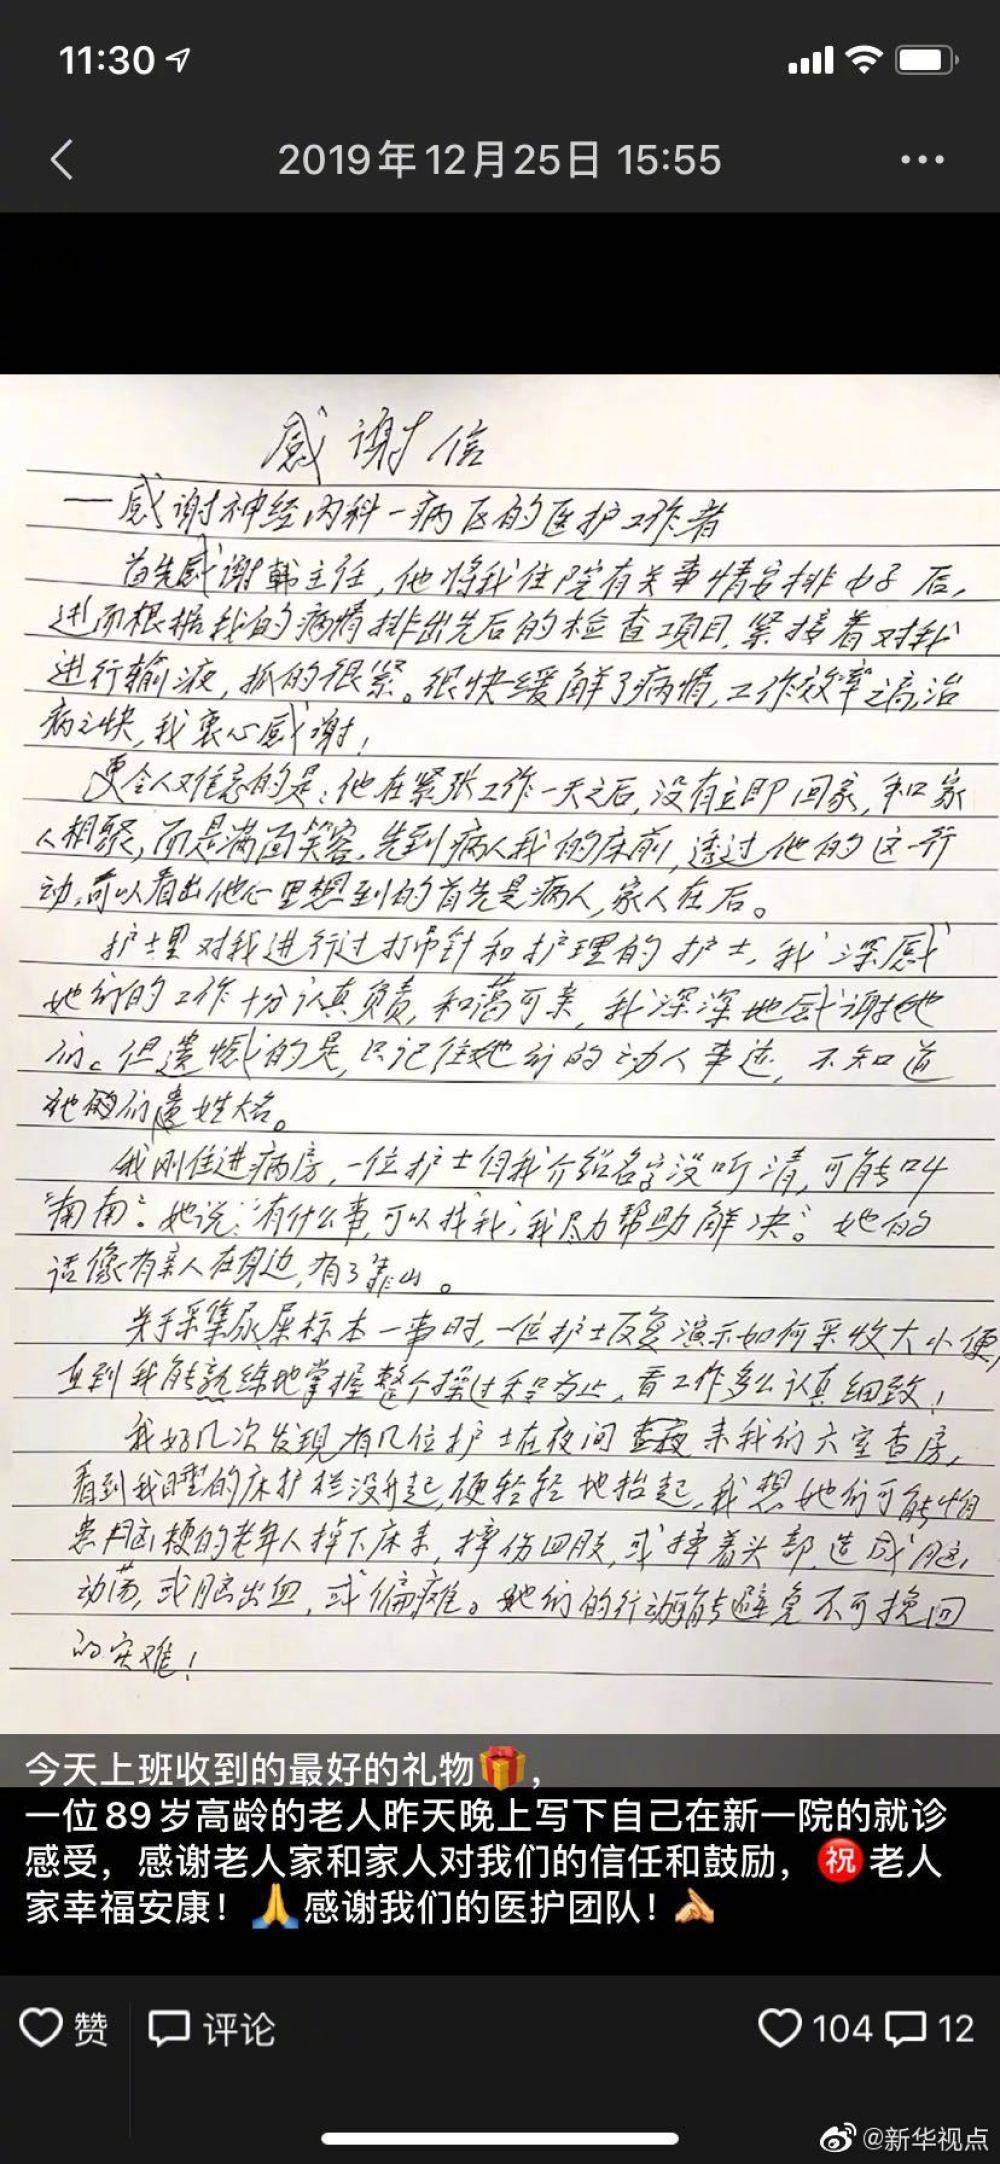 11:30
2019年12月25日 15:55
感谢信
一感谢神经内科一病区的医护工作者
首先感谢韩主任，他将我住院有关事情安排好后，
进而根据我的病情排出先后的检查项目，紧接着对我
进行输液，抓的很紧。很快缓解了病情，工作效率之高，治
病之快，我衷心感谢！
更令人难忘的是：他在紧张工作一天之后，没有立即回家，和家
人相聚，而是满面笑容，先到病人我的床前，透过他的这一行
动，可以看出他心里想到的首先是病人，家人在后。
护士里对我进行过打吊针和护理的护士，我深感
她们的工作十分认真负责，和蔼可亲，我深深地感谢她
们。但遗憾的是，只记住她们的动人事迹，不知道
她们遵姓大名。
我刚住进病房，一位护士向我介绍名字没听清，可能叫
“南南”。她说：“有什么事，可以找我，我尽力帮助解决”。她的
话像有亲人在身边，有了靠山。
关于采集尿屎标本一事时，一位护士反复演示如何采收大小便，
直到我能熟练地掌握整个操过程为止，看工作多么认真细致！
我好几次发现有几位护士在夜间来我们六室查房，
看到我睡的床护栏没升起，便轻轻地抬起，我想她们可能怕
患脑梗的老年人掉下床来，摔伤四肢，或摔着头部，造成脑
动荡，或脑出血，或偏瘫。她们的行动能避免不可挽回
的灾难！
今天上班收到的最好的礼物🎁，
一位89岁高龄的老人昨天晚上写下自己在新一院的就诊
感受，感谢老人家和家人对我们的信任和鼓励，㊗️老人
家幸福安康！🙏感谢我们的医护团队！
赞 评论 104 12
@新华视点